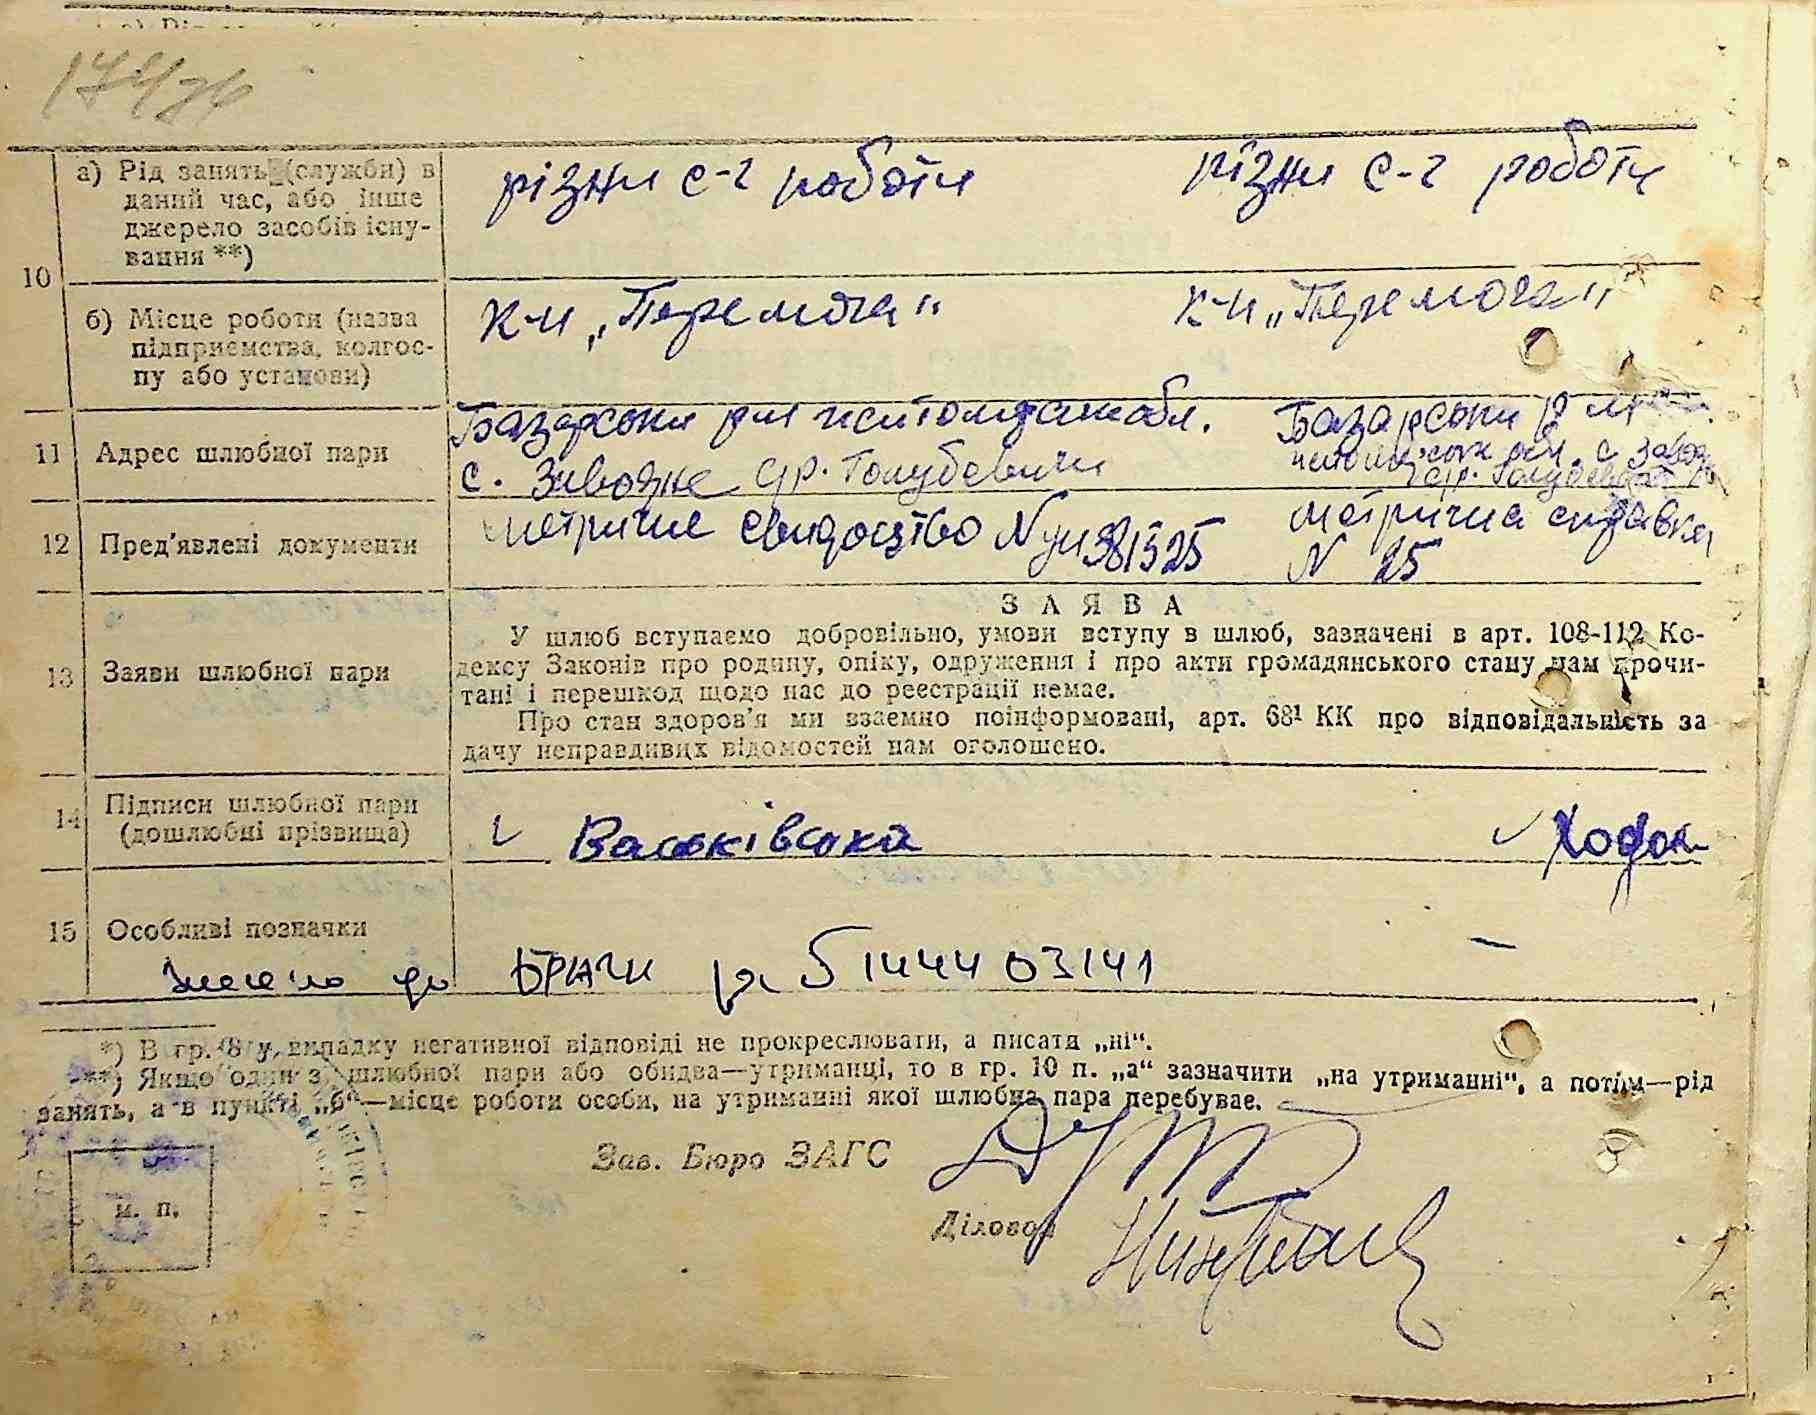 а) Рід занять (службн) в
даний час, або інше
джерело засобів існу-
вання **)
різни с-г роботи
різни с-г роботи
10
б) Місце роботи (назва
підприємства, колгос-
пу або установи)
к-п „Перемога"
к-п „Перемога"
11
Адрес шлюбної пари
Базарський р-н
с. Заводне с/р. Голубевичи
Базарський р-н
12
Пред'явлені документи
метричне свидоцтво N
метрична справка
N 25
З А Я В А
13
Заяви шлюбної пари
У шлюб вступаємо добровільно, умови вступу в шлюб, зазначені в арт. 108-112 Ко-
дексу Законів про родину, опіку, одруження і про акти громадянського стану нам прочи-
тані і перешкод щодо нас до реєстрації немає.
Про стан здоров'я ми взаємно поінформовані, арт. 68¹ КК про відповідальність за
дачу неправдивих відомостей нам оголошено.
14
Підписи шлюбної пари
(дошлюбні прізвища)
Васьківська
Ходак
15
Особливі позначки
до БРАЧН 1444 03141
*) В гр. 8 у випадку негативної відповіді не прокреслювати, а писати „ні".
**) Якщо один з шлюбної пари або обидва—утриманці, то в гр. 10 п. „а" зазначити „на утриманні", а потім—рід
занять, а в пункті „б"—місце роботи особи, на утриманні якої шлюбна пара перебуває.
Зав. Бюро ЗАГС
м. п.
Діловод